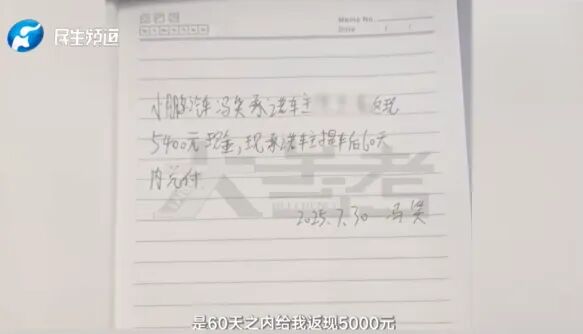 民生频道
Memo No.
Date / /
小鹏汽车冯笑承诺车主 返现
5400元现金,现承诺车主提车后60天
内兑付
2025.7.30 冯笑
大参考
是60天之内给我返现5000元